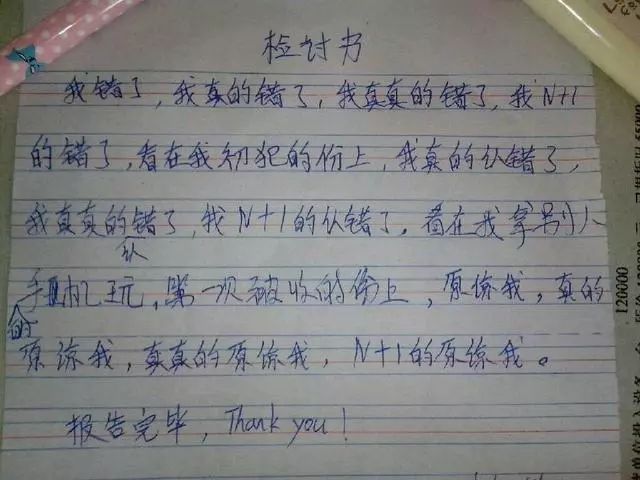 检讨书
我错了,我真的错了,我真真的错了,我N+1
的错了,看在我初犯的份上,我真的认错了,
我真真的认错了,我N+1的认错了。看在我拿别人
的手机玩,第一次被收的份上,原谅我,真的
原谅我,真真的原谅我,N+1的原谅我。
报告完毕,Thank you!
120000